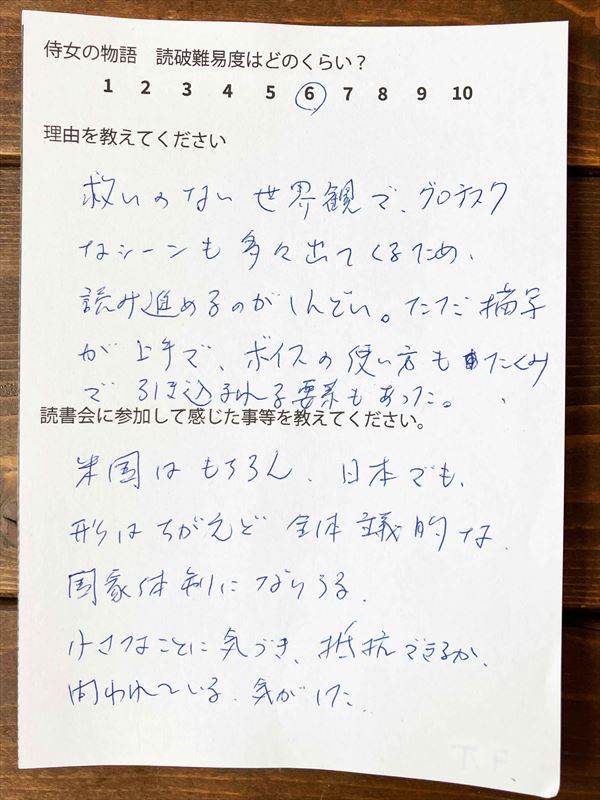 侍女の物語 読破難易度はどのくらい？
1 2 3 4 5 6 7 8 9 10
理由を教えてください
救いのない世界観で、グロテスク
なシーンも多々出てくるため、
読み進めるのがしんどい。ただ描写
が上手で、ボイスの使い方もたくみ
で引き込まれる要素もあった。
読書会に参加して感じた事等を教えてください。
米国はもちろん、日本でも、
形はちがえど全体主義的な
国家体制になりうる。
小さなことに気づき、抵抗できるか、
問われている気がした。